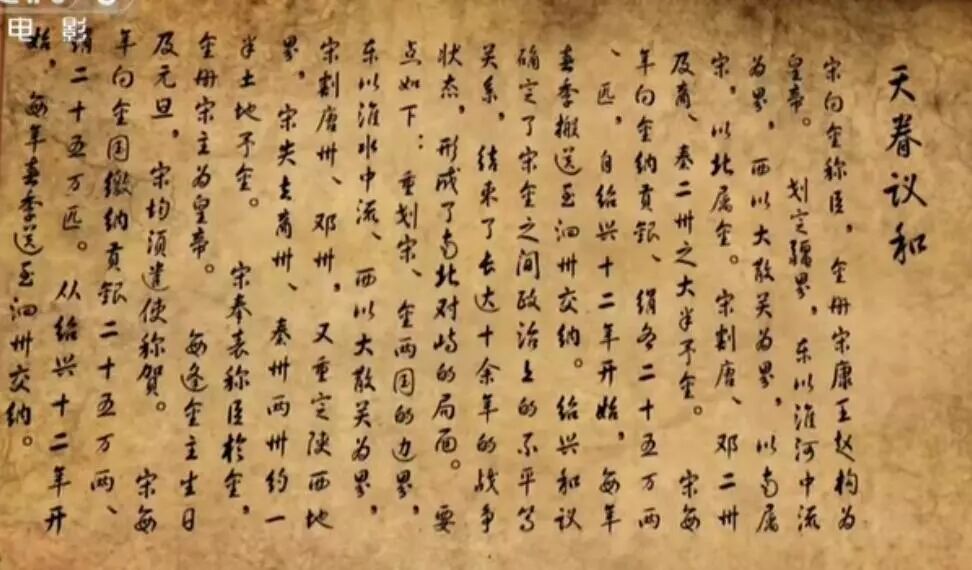 电影
天眷议和
宋向金称臣,金册宋康王赵构为
皇帝。 划定疆界,东以淮河中流
为界,西以大散关为界,以南属
宋,以北属金。宋割唐、邓二州
及商、秦二州之大半予金。 宋每
年向金纳贡银、绢各二十五万两
、匹,自绍兴十二年开始,每年
春季搬送至泗州交纳。绍兴和议
确定了宋金之间政治上的不平等
关系,结束了长达十余年的战争
状态,形成了南北对峙的局面。 要
点如下:重划宋、金两国的边界,
东以淮水中流、西以大散关为界,
宋割唐州、邓州,又重定陕西地
界,宋失去商州、秦州两州约一
半土地予金。 宋奉表称臣於金,
金册宋主为皇帝。 每逢金主生日
及元旦,宋均须遣使称贺。 宋每
年向金国缴纳贡银二十五万两、
绢二十五万匹。从绍兴十二年开
始,每年春季送至泗州交纳。